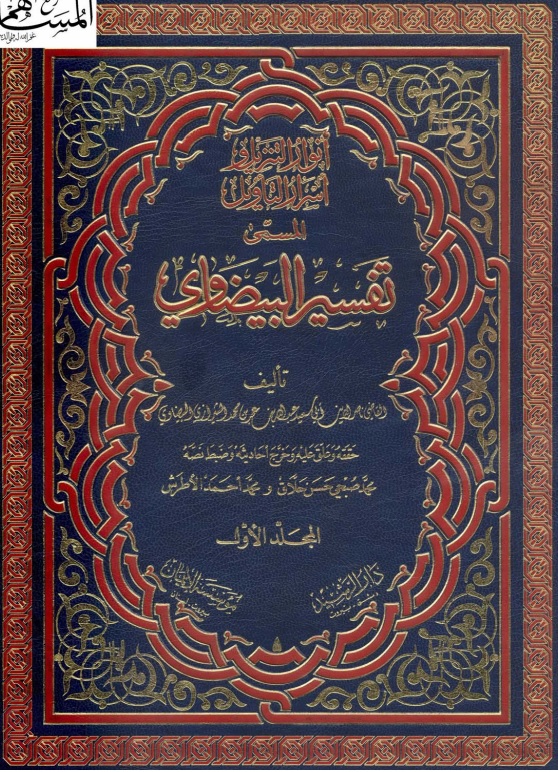 المساهم
أنوار التنزيل و
أسرار التأويل
المسمى
تفسير البيضاوي
تأليف
القاضي ناصر الدين أبي سعيد عبد الله بن عمر بن محمد الشيرازي البيضاوي
حققه وعلق عليه وخرج أحاديثه وضبط نصه
محمد صبحي حسن حلاق و محمد أحمد الأطرش
المجلد الأول
دار الرشيد
دمشق - بيروت
مؤسسة الإيمان
بيروت - لبنان